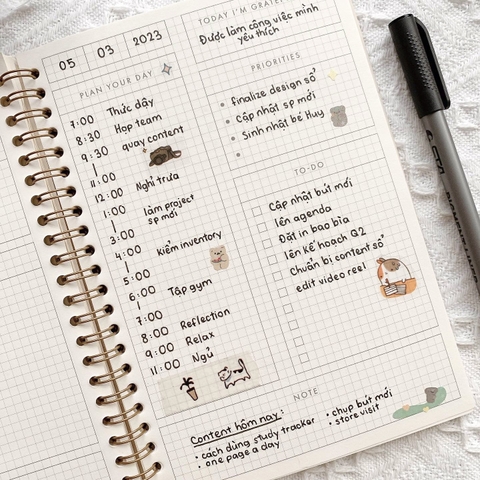 05 03 2023
PLAN YOUR DAY
7:00 Thức dậy
8:30 Họp team
9:30 quay content
11:00
12:00 Nghỉ trưa
1:00 làm project
sp mới
3:00
4:00 kiểm inventory
5:00
6:00 Tập gym
7:00
8:00 Reflection
9:00 Relax
11:00 Ngủ
TODAY I'M GRATEFUL
Được làm công việc mình
yêu thích
PRIORITIES
finalize design sổ
Cập nhật sp mới
Sinh nhật bé Huy
TO-DO
Cập nhật bút mới
lên agenda
Đặt in bao bìa
lên kế hoạch Q2
Chuẩn bị content sổ
edit video reel
NOTE
Content hôm nay:
• cách dùng study tracker
• one page a day
• chụp bút mới
• store visit